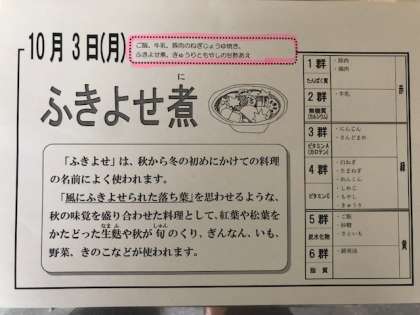 10月3日(月)
ご飯、牛乳、豚肉のねぎじょうゆ焼き、
ふきよせ煮、きゅうりともやしの甘酢あえ
に
ふきよせ煮
「ふきよせ」は、秋から冬の初めにかけての料理
の名前によく使われます。
「風にふきよせられた落ち葉」を思わせるような、
秋の味覚を盛り合わせた料理として、紅葉や松葉を
なまふ しゅん
かたどった生麩や秋が旬のくり、ぎんなん、いも、
野菜、きのこなどが使われます。
1群
たんぱく質
・豚肉
・鶏肉
2群
無機質
(カルシウム)
・牛乳
3群
ビタミンA
(カロテン)
・にんじん
・さんどまめ
4群
ビタミンC
・白ねぎ
・たまねぎ
・れんこん
・しめじ
・もやし
・きゅうり
5群
炭水化物
・ご飯
・砂糖
・さといも
6群
脂質
赤
緑
黄